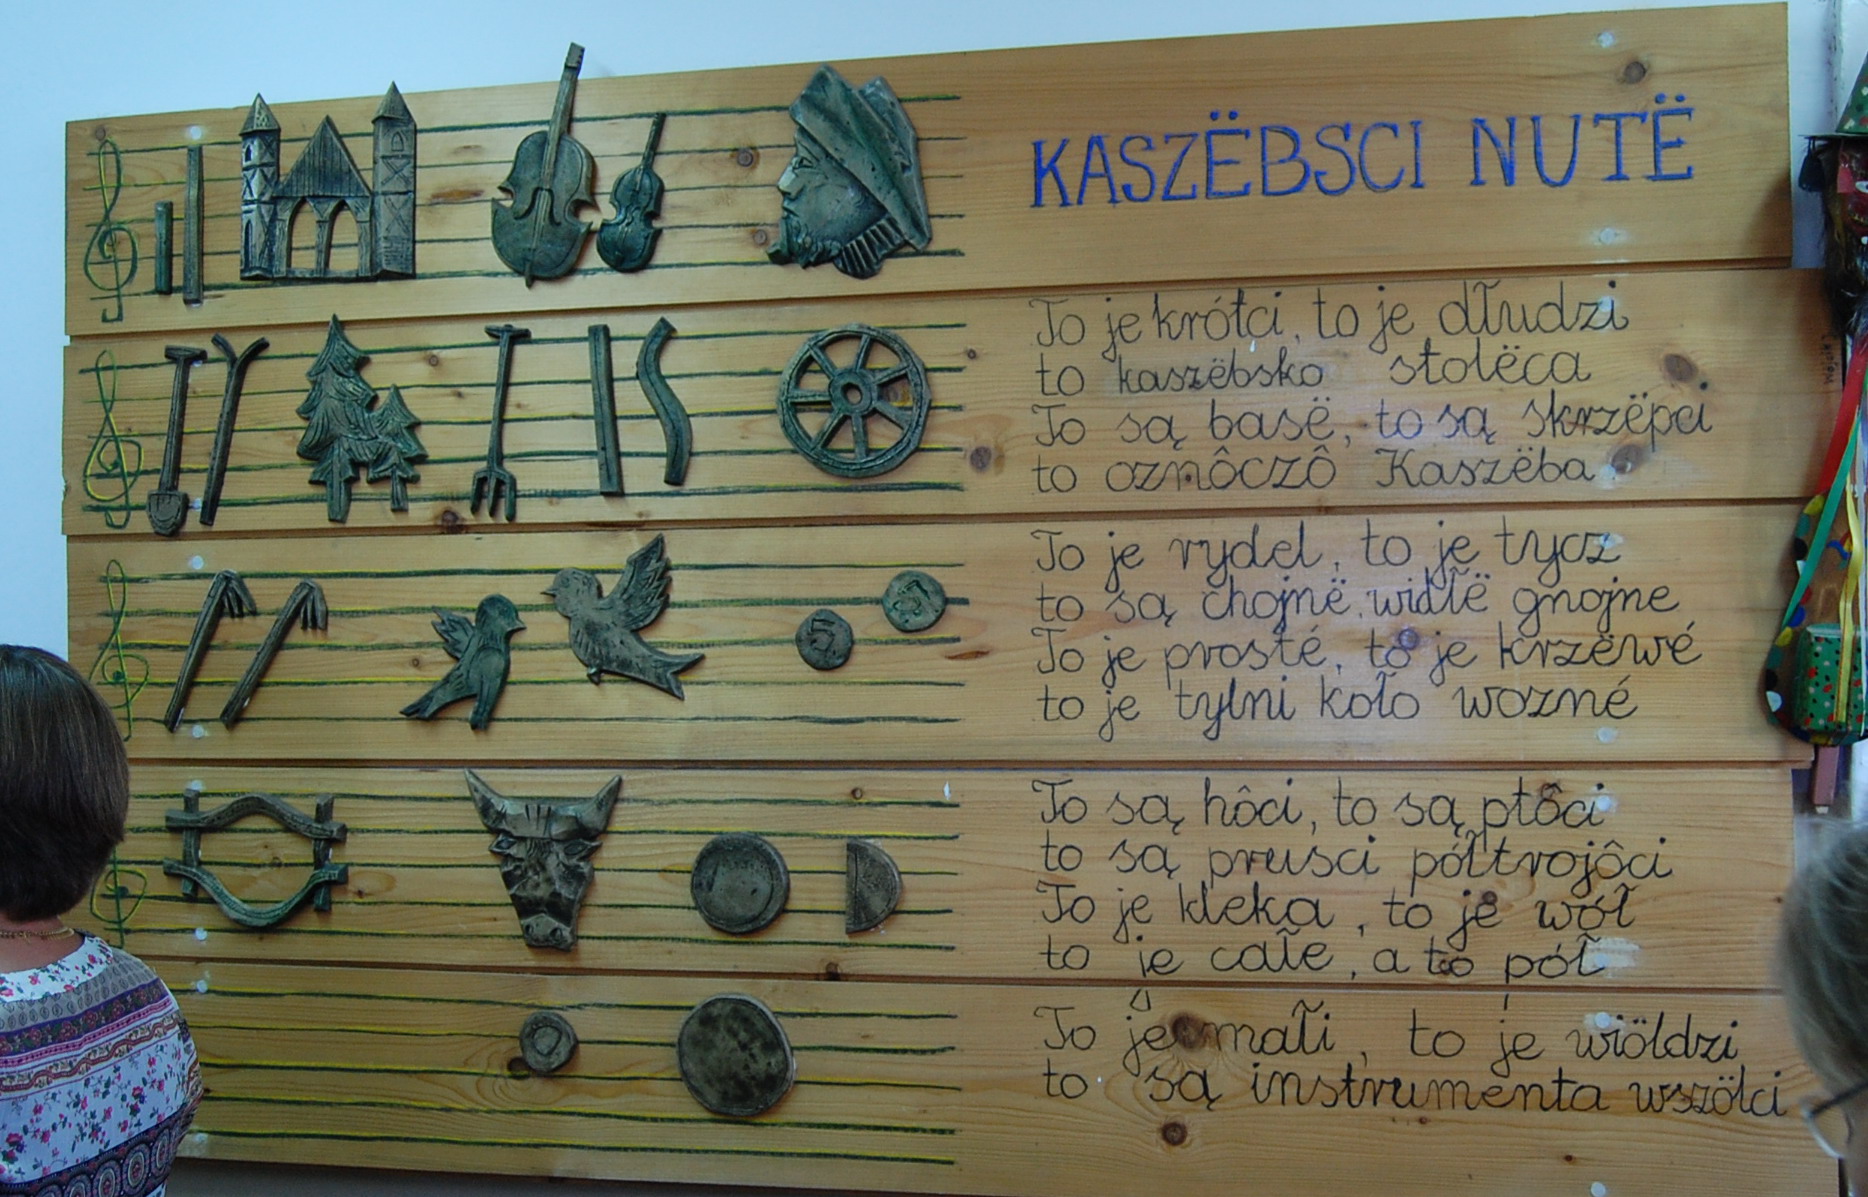 KASZËBSCI NUTË
To je krótci, to je dłudzi
to kaszëbsko stolëca
To są basë, to są skrzëpci
to oznôczô Kaszëba
To je rydel, to je tycz
to są chojnë, widłë gnojne
To je prosté, to je krzëwé
to je tylni koło wozné
To są hôci, to są ptôci
to są prusci półtrojôci
To je kleka, to je wół
to je całe, a to pół
To je małi, to je wiöldzi
to są instrumenta wszölci
5